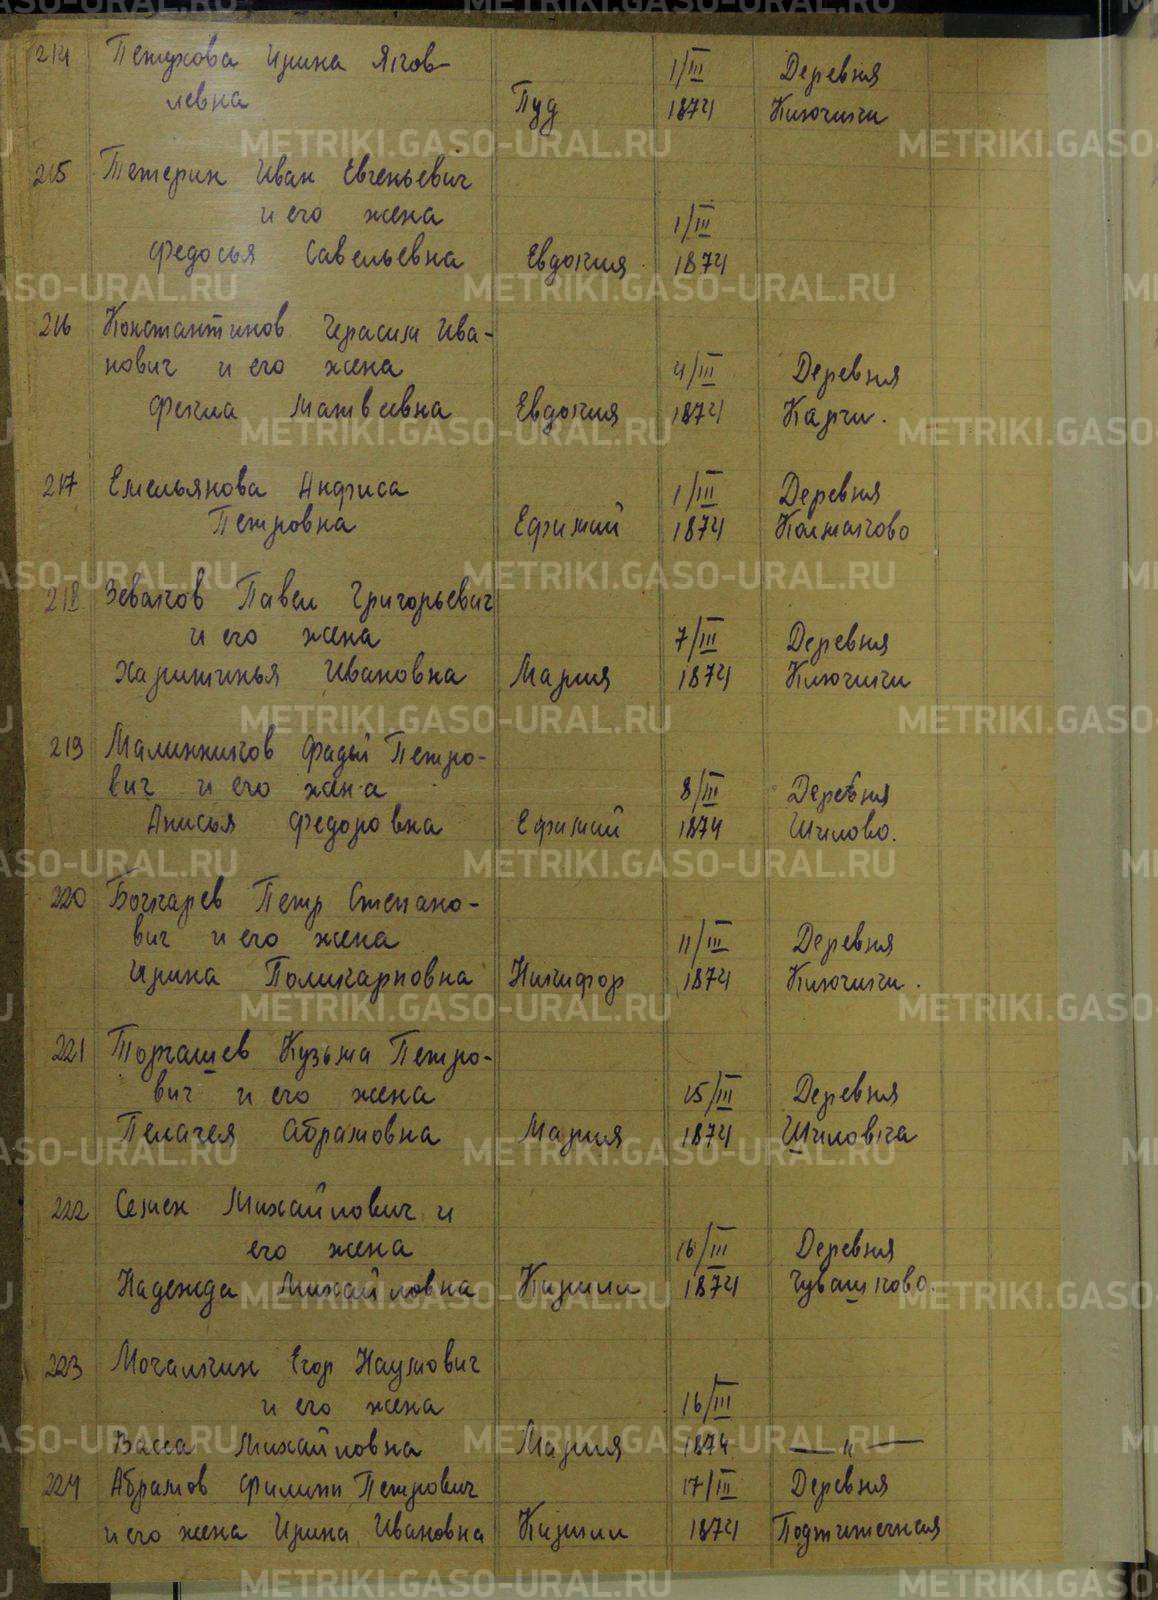 214 Петухова Ирина Яков-
левна Пуд 1/III 1874 Деревня Ключики
215 Тетерин Иван Евгеньевич
и его жена 1/III
Федосья Савельевна Евдокия 1874
216 Константинов Герасим Ива-
нович и его жена 4/III Деревня
Фекла Матвеевна Евдокия 1874 Карги.
217 Емельянова Анфиса 1/III Деревня
Петровна Ефимий 1874 Колмаково
218 Зеваков Павел Григорьевич
и его жена 7/III Деревня
Харитинья Ивановна Мария 1874 Ключики
219 Малинников Фадей Петро-
вич и его жена 8/III Деревня
Анисья Федоровна Ефимий 1874 Шилово.
220 Бочкарев Петр Степано-
вич и его жена 11/III Деревня
Ирина Поликарповна Никифор 1874 Ключики.
221 Торгашев Кузьма Петро-
вич и его жена 15/III Деревня
Пелагея Абрамовна Мария 1874 Шиловка
222 Семен Михайлович и
его жена 16/III Деревня
Надежда Михайловна Кирилл 1874 Чувашково.
223 Мочалкин Егор Наумович
и его жена 16/III
Васса Михайловна Мария 1874 — " —
224 Абрамов Филипп Петрович 17/III Деревня
и его жена Ирина Ивановна Кирилл 1874 Подтитечная
METRIKI.GASO-URAL.RU